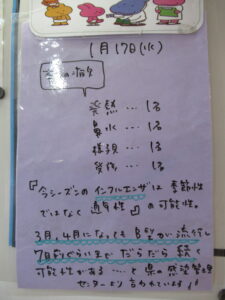 1月17日(水)
今日の病欠
発熱…1名
鼻水…1名
様子…1名
発作…1名
『今シーズンのインフルエンザは季節性
ではなく通年性』の可能性。
3月、4月になってもB型が流行し
7月ぐらいまでだらだら続く
可能性がある…と県の感染管理
センターより言われています